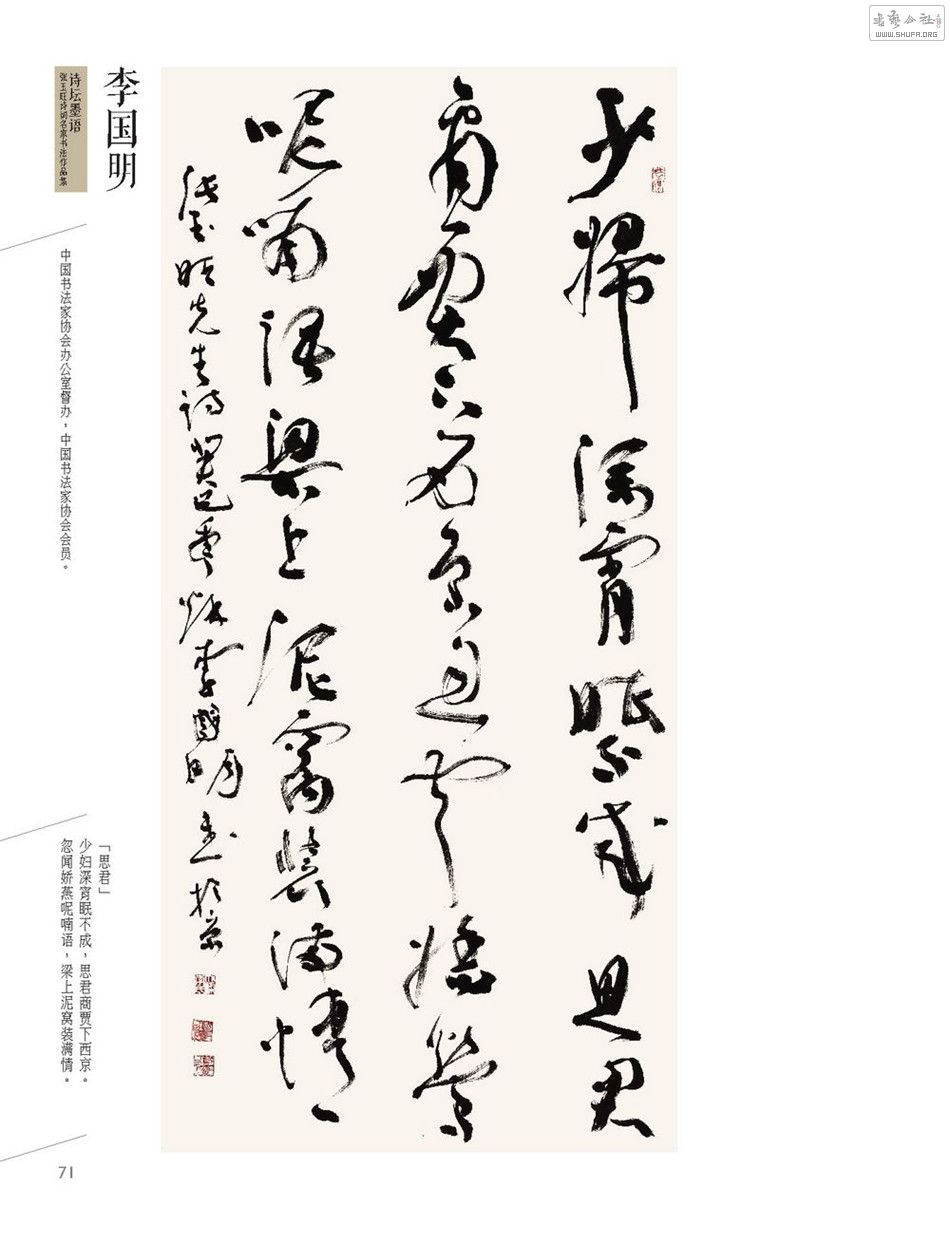 WWW.SHUFA.ORG
少婦深宵眠不成思君
商賈下西京忽聞嬌
呢喃語梁上泥窩裝滿情
張玉旺先生詩癸巳年秋李國明書於京
李国明
诗坛墨语
张玉旺诗词名家书法作品集
中国书法家协会办公室督办，中国书法家协会会员。
「思君」
少妇深宵眠不成，思君商贾下西京。
忽闻娇燕呢喃语，梁上泥窝装满情。
71